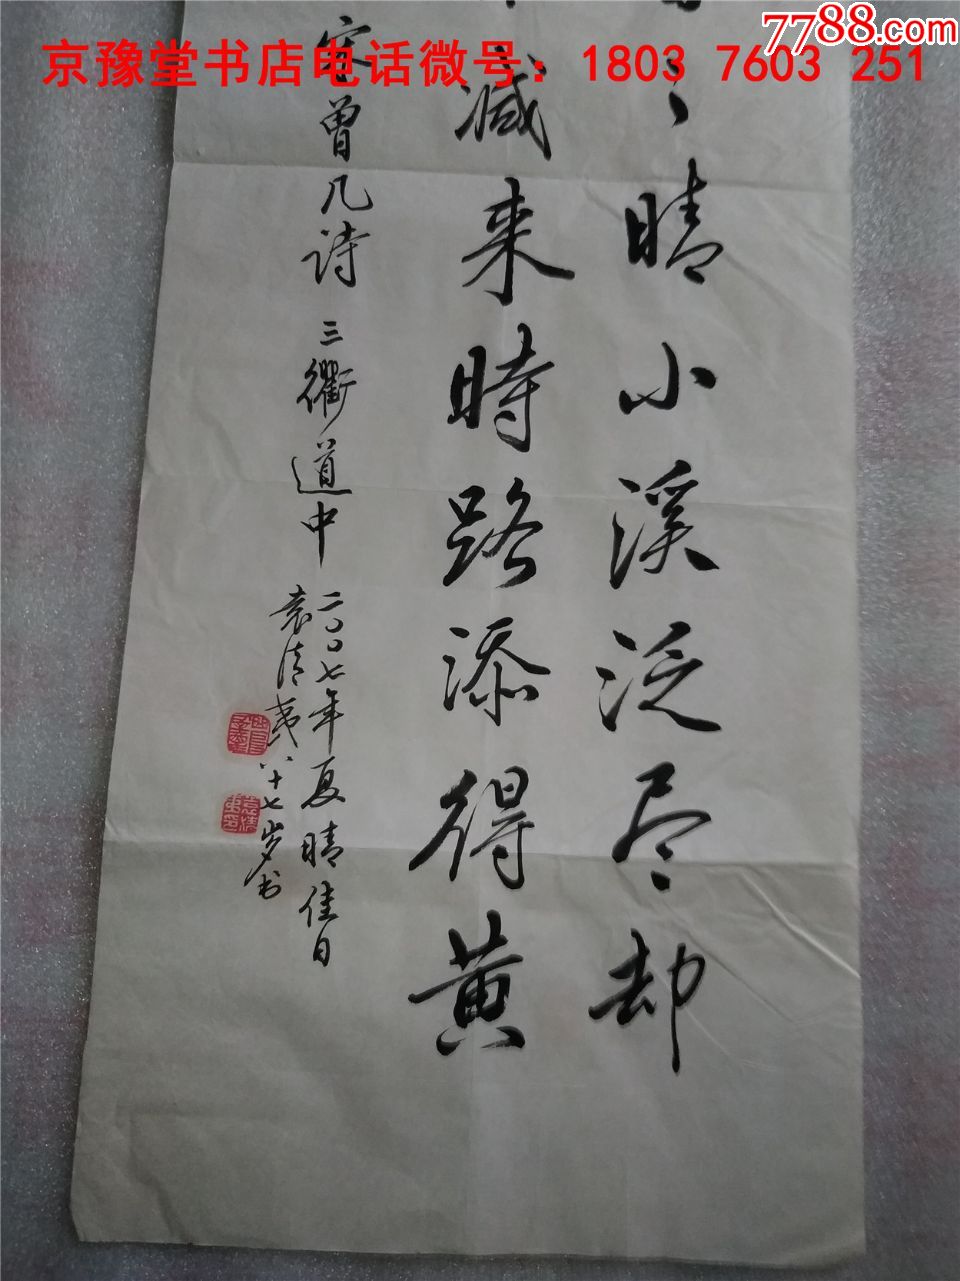 7788.com
京豫堂书店电话微号：1803 7603 251
日〻晴小溪泛尽却
减来時路添得黄
宋曾几诗 三衢道中
二〇〇七年夏晴佳日
袁清夷八十七岁书